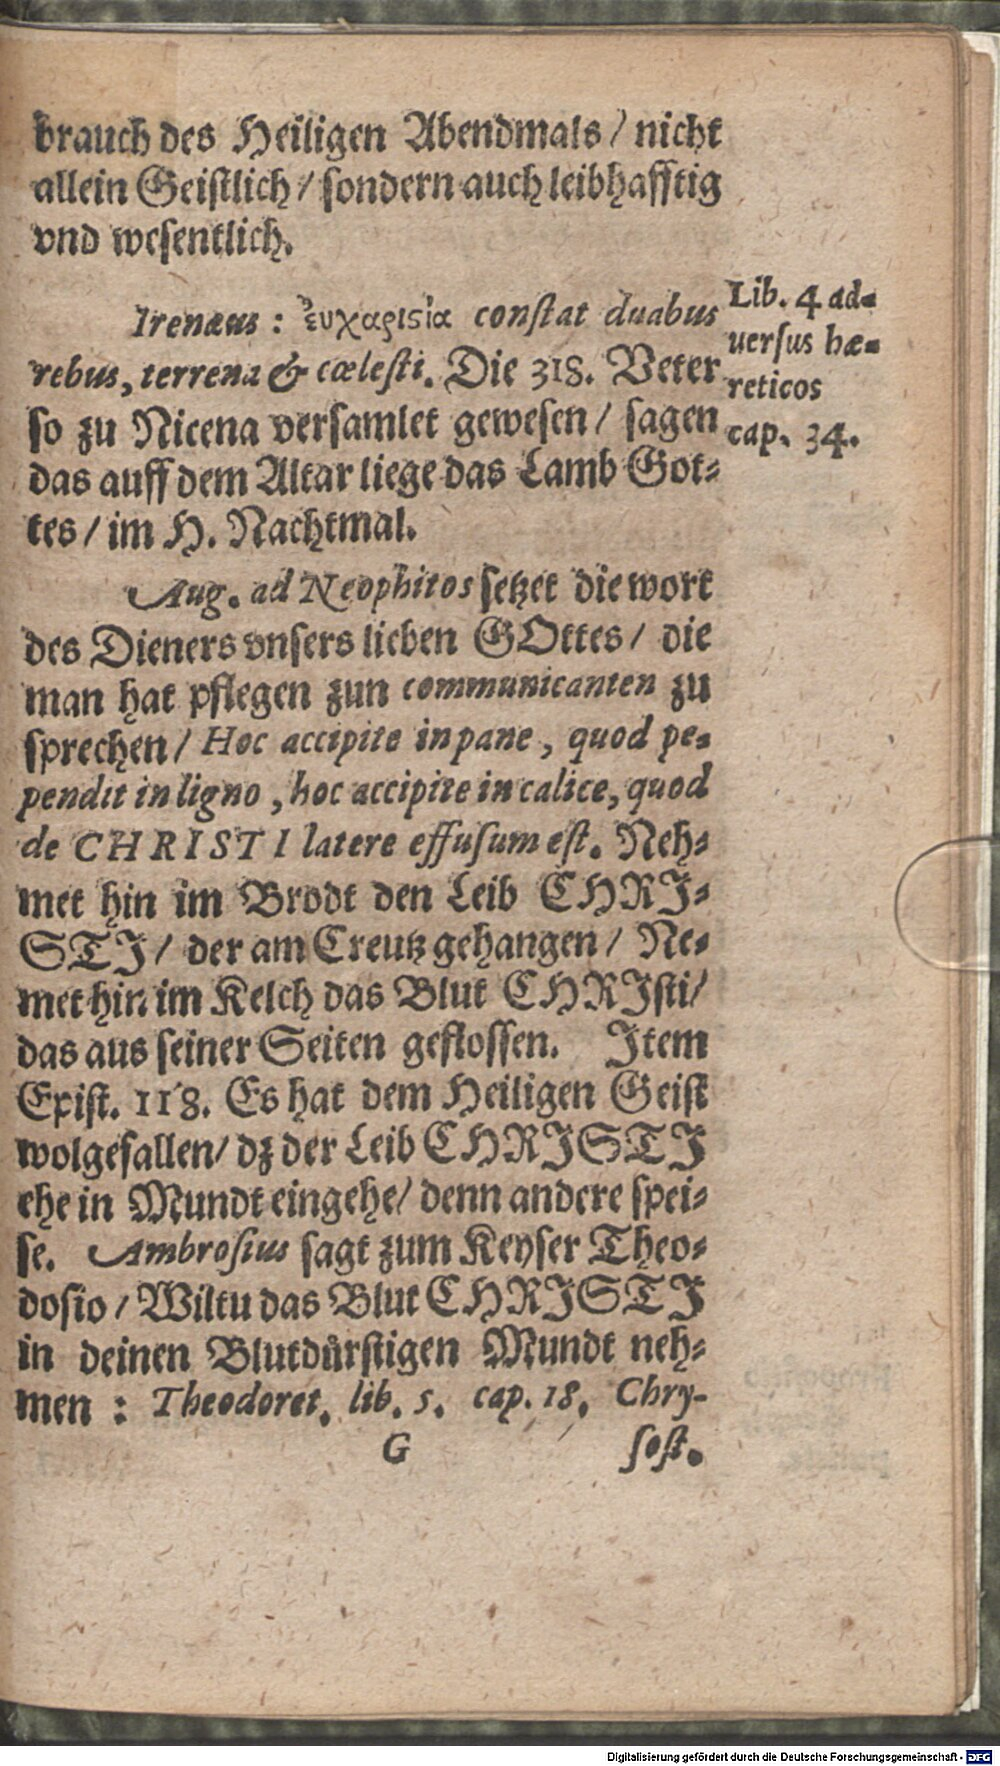 brauch des Heiligen Abendmals / nicht
allein Geistlich / sondern auch leibhafftig
vnd wesentlich.
Irenæus : ἐυχαριϛία constat duabus
rebus, terrena & cœlesti. Die 318. Veter
so zu Nicena versamlet gewesen / sagen
das auff dem Altar liege das Lamb Got-
tes / im H. Nachtmal.
Lib. 4 ad-
versus hæ-
reticos
cap. 34.
Aug. ad Neophitos setzet die wort
des Dieners vnsers lieben GOttes / die
man hat pflegen zun communicanten zu
sprechen / Hoc accipite in pane, quod pe-
pendit in ligno, hoc accipite in calice, quod
de CHRISTI latere effusum est. Neh-
met hin im Brodt den Leib CHRI-
STI / der am Creutz gehangen / Ne-
met hin im Kelch das Blut CHRIsti /
das aus seiner Seiten geflossen. Item
Epist. 118. Es hat dem Heiligen Geist
wolgefallen / dz der Leib CHRISTI
ehe in Mundt eingehe / denn andere spei-
se. Ambrosius sagt zum Keyser Theo-
dosio / Wiltu das Blut CHRISTI
in deinen Blutdürstigen Mundt neh-
men : Theodoret. lib. 5. cap. 18. Chry-
G sost.
Digitalisierung gefördert durch die Deutsche Forschungsgemeinschaft - DFG